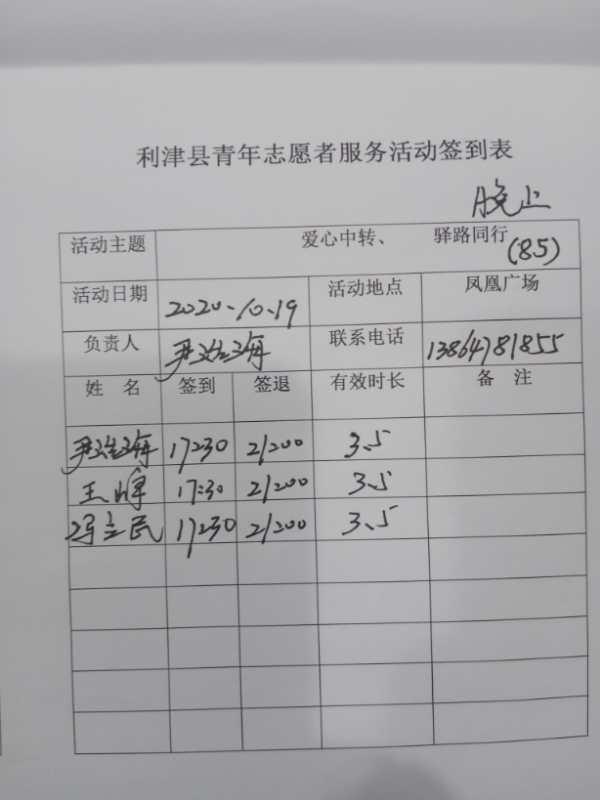 利津县青年志愿者服务活动签到表
晚上
活动主题 爱心中转、 驿路同行 (85)
活动日期 2020、10、19 活动地点 凤凰广场
负责人 尹治海 联系电话 13864781855
姓 名 签到 签退 有效时长 备 注
尹治海 17:30 21:00 3、5
王峰 17:30 21:00 3、5
冯立民 17:30 21:00 3、5